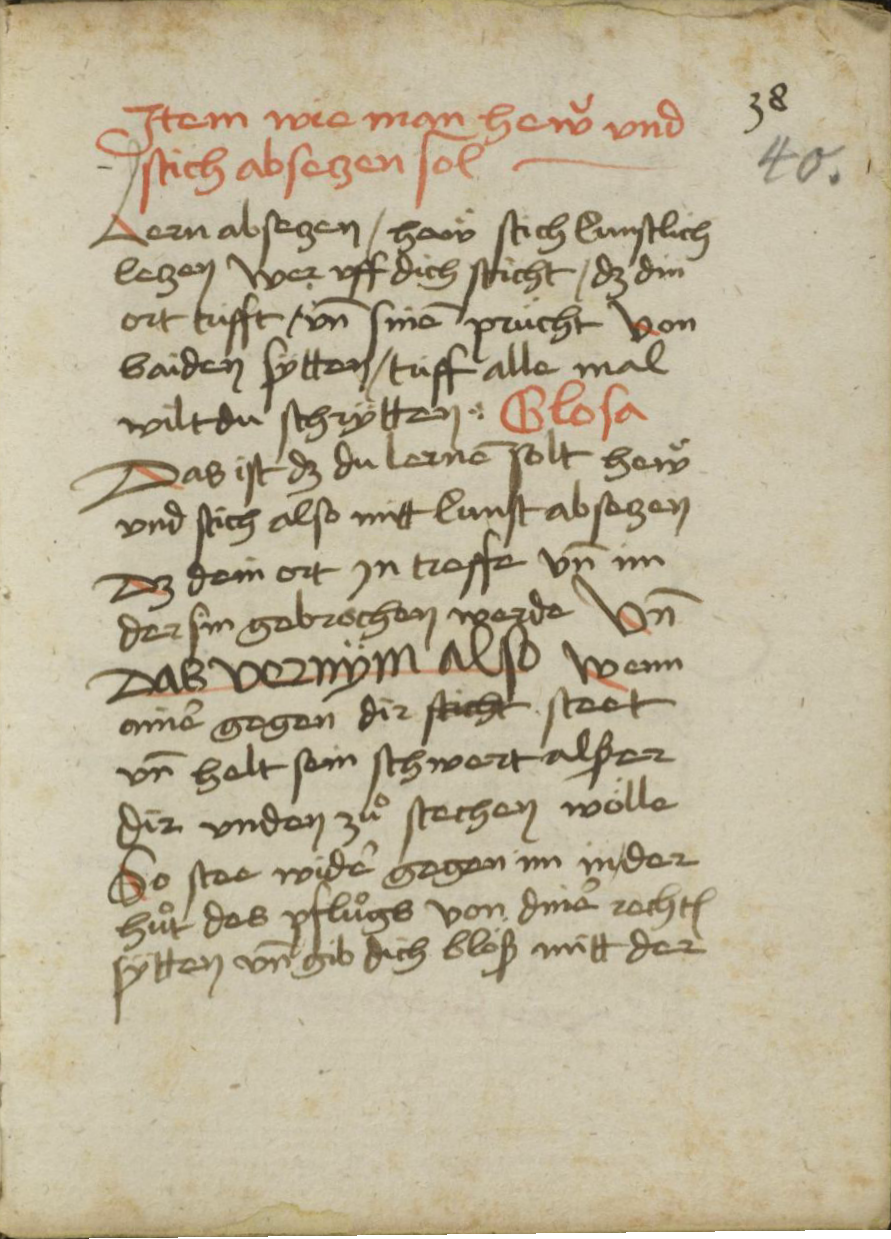 38
40.
Item wie man hew̆ und
stich absetzen sol
Lern absetzen / hew̆ stich kunstlich
letzen Wer vff dich sticht / dz din
ort trifft / vn̄ sinē pricht Von
baiden sytten / triff alle mal
wilt du schrÿtten :· Glosa
Das ist dz du lernē solt hew̆
vnd stich also mitt kunst absetzen
Dz dein ort In treffe vn̄ im
der sin gebrochen werde Vn̄
Das vernÿm also Wenn
ainer gegen dir sticht steet
vn̄ helt sein schwert als er
dir vnden zů stechen wölle
So stee wider gegen im in der
hůt des pflůgs von diner rechtñ
sÿtten vn̄ gib dich bloß mitt der